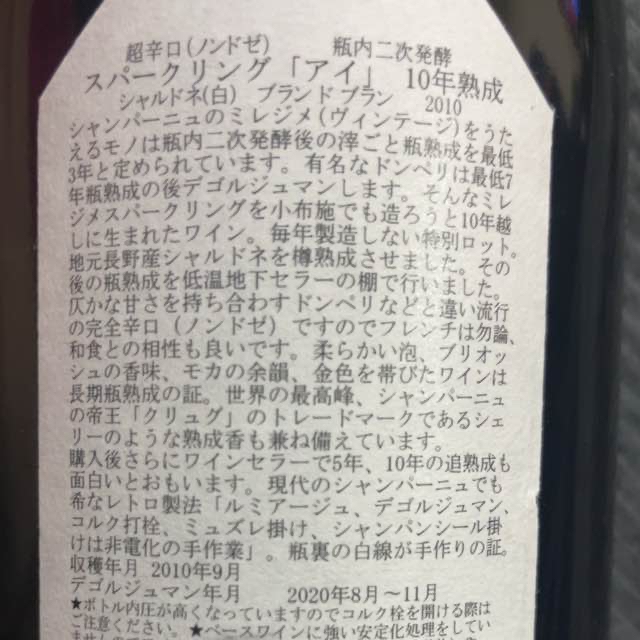 超辛口(ノンドゼ)　瓶内二次発酵
スパークリング「アイ」 10年熟成
シャルドネ(白) ブランドブラン 2010
シャンパーニュのミレジメ(ヴィンテージ)をうた
えるモノは瓶内二次発酵後の滓ごと瓶熟成を最低
3年と定められています。有名なドンペリは最低7
年瓶熟成の後デゴルジュマンします。そんなミレ
ジメスパークリングを小布施でも造ろうと10年越
しに生まれたワイン。毎年製造しない特別ロット。
地元長野産シャルドネを樽熟成させました。その
後の瓶熟成を低温地下セラーの棚で行いました。
仄かな甘さを持ち合わすドンペリなどと違い流行
の完全辛口（ノンドゼ）ですのでフレンチは勿論、
和食との相性も良いです。柔らかい泡、ブリオッ
シュの香味、モカの余韻、金色を帯びたワインは
長期瓶熟成の証。世界の最高峰、シャンパーニュ
の帝王「クリュグ」のトレードマークであるシェ
リーのような熟成香も兼ね備えています。
購入後さらにワインセラーで5年、10年の追熟成も
面白いとおもいます。現代のシャンパーニュでも
希なレトロ製法「ルミアージュ、デゴルジュマン、
コルク打栓、ミュズレ掛け、シャンパンシール掛
けは非電化の手作業」。瓶裏の白線が手作りの証。
収穫年月 2010年9月
デゴルジュマン年月　2020年8月～11月
★ボトル内圧が高くなっていますのでコルク栓を開ける際は
ご注意ください。★ベースワインに強い安定化処理をしてい